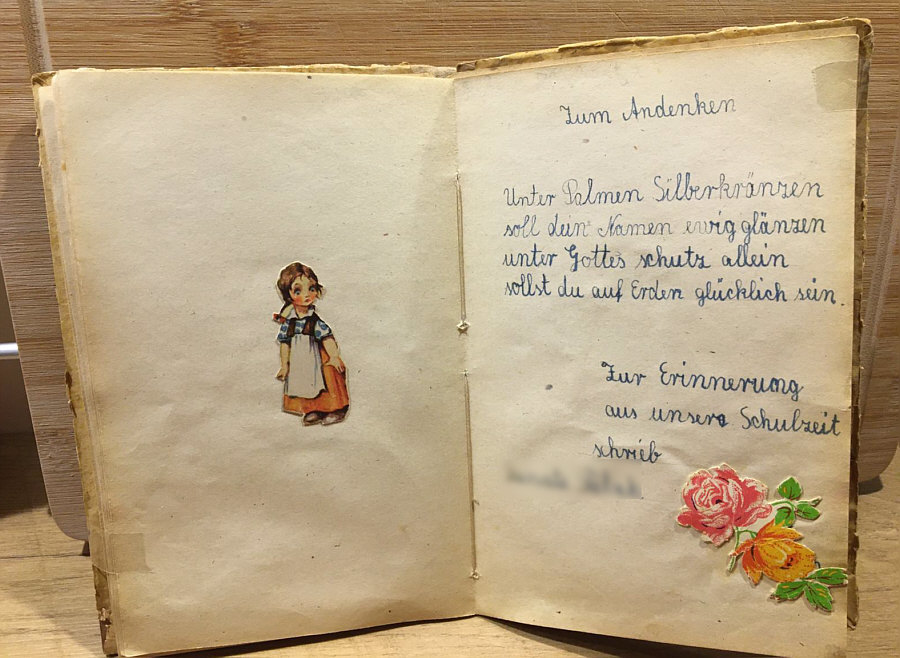 Zum Andenken
Unter Palmen Silberkränzen
soll dein Namen ewig glänzen
unter Gottes schutz allein
sollst du auf Erden glücklich sein.
Zur Erinnerung
aus unsere Schulzeit
schrieb